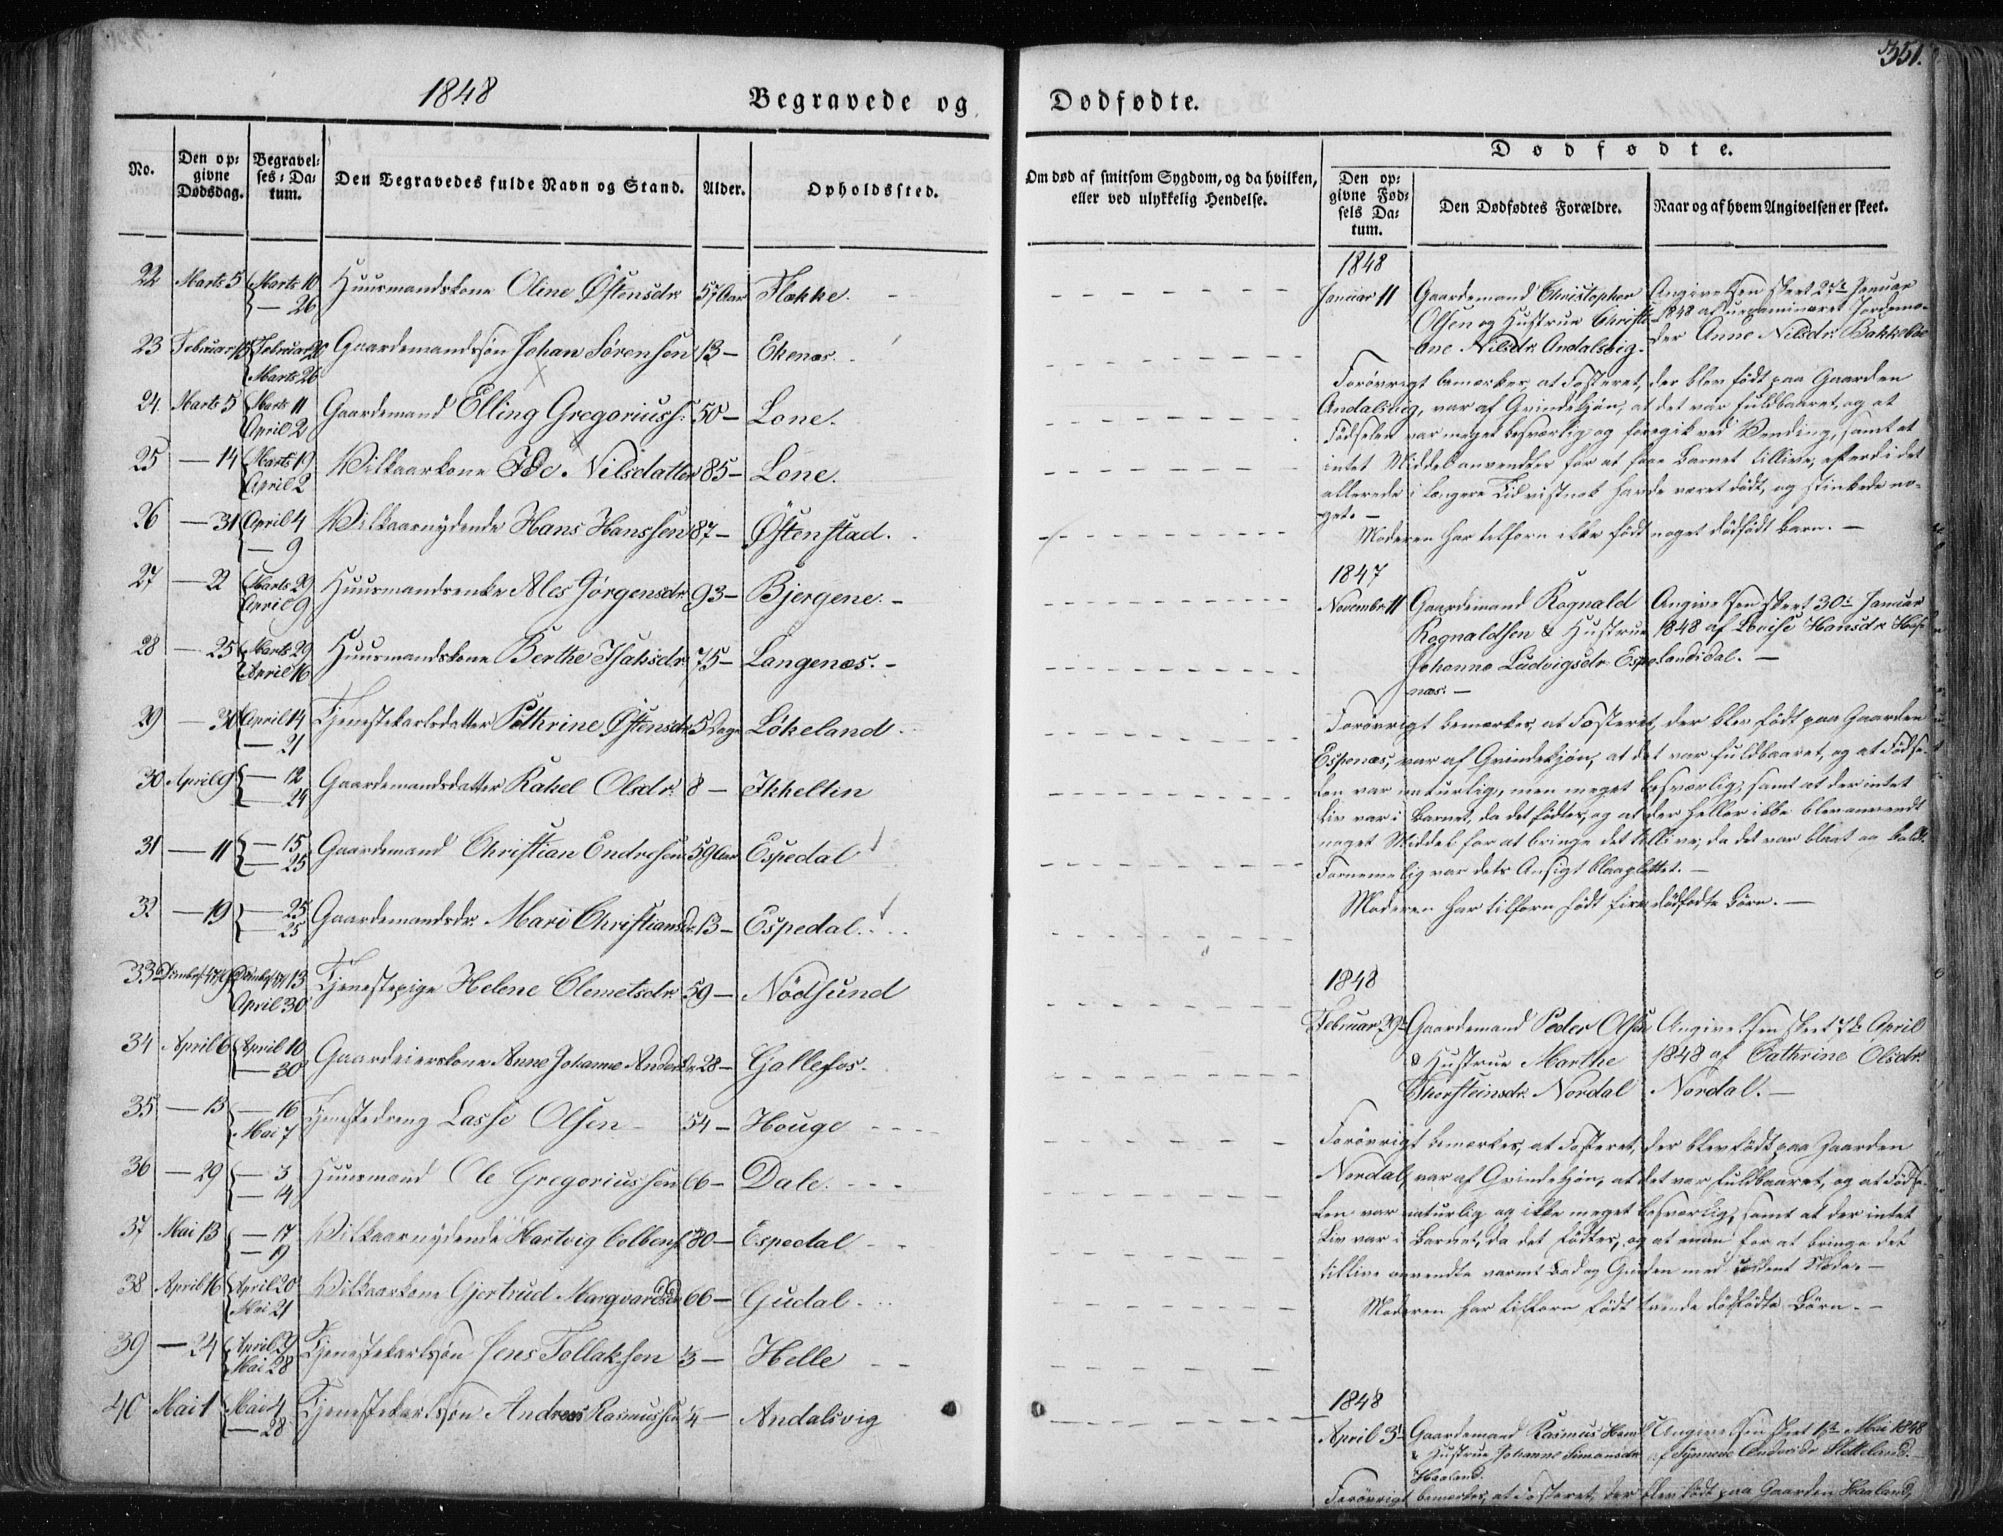 351.
1848
Begravede og
Dødfødte.
No.
Den opgivne Dødsdag.
Begravelses-Datum.
Den Begravedes fulde Navn og Stand.
Alder.
Opholdssted.
Om død af smitsom Sygdom, og da hvilken, eller ved ulykkelig Hendelse.
Dødfødte.
Den opgivne Fødsels Datum.
Den Dødfødtes Forældre.
Naar og af hvem Angivelsen er skeet.
22 Marts 5 Marts 10 Huusmandskone Oline Østensdr. 57 Aar Flekke.
— 26
23 Februar 13 Februar 20 Gaardemandssøn Johan Sørensen 13 — Ekenæs.
Marts 26
24 Marts 5 Marts 11 Gaardemand Elling Gregoriuss. 50 — Lone.
April 2
25 — 14 Marts 19 Vilkaarkone Ide Nilsdatter 85 — Lone.
April 2
26 — 31 April 4 Vilkaarnydende Hans Hanssen 87 — Østenstad.
— 9
27 — 22 Marts 29 Huusmandsenke Ales Jørgensdr. 93 — Bjergene.
April 9
28 — 25 Marts 29 Huusmandskone Berthe Isaksdr. 75 — Langenæs.
April 16
29 — 30 April 14 Tjenestekarlsdatter Pethrine Østensdr. 5 Dage Løkeland
— 21
30 April 9 — 12 Gaardemandsdatter Rakel Olsdr. 8 — Ikkeltin
— 24
31 — 11 — 15 Gaardemand Christian Endresen 59 Aar Espedal
— 25
32 — 19 — 25 Gaardemandsdr. Mari Christiansdr. 13 — Espedal.
— 25
33 13 Tjenestepige Helene Clemetsdr. 59 — Nødsund
April 30
34 April 6 April 10 Gaardeierskone Anne Johanne Andersdr. 28 — Gallefos.
— 30
35 — 13 — 16 Tjenestedreng Lasse Olsen 54 — Houge
Mai 7
36 — 29 — 3 Huusmand Ole Gregoriussen 66 — Dale.
— 4
37 Mai 13 — 17 Vilkaarnydende Hartvig Colbens. 80 — Espedal
— 19
38 April 16 April 20 Vilkaarkone Gjertrud Margvardsdr. 66 — Gudal.
Mai 21
39 — 24 April 29 Tjenestekarlssøn Jens Tollaksen 3 — Helle
Mai 28
40 Mai 1 Mai 4 Tjenestekarlssøn Andreas Rasmussen 1/4 — Andalsvig
— 28
1848
Januar 11 Gaardemand Christopher Angivelsen skeet 25de Januar
Olsen og Hustrue Christi- 1848 af uexamineret Jordemo-
ane Nilsdr. Andalsvig. der Anne Nilsdr. Bakkebøe
Forøvrigt bemærkes, at Fosteret, der blev født paa Gaarden
Andalsvig, var af Qvindekjøn, at det var fuldbaaret, og at
Fødselen var meget besværlig og foregik ved Vending, samt at
intet Middel anvendtes for at faae Barnet tillive, efterdi det
allerede i længere Tid vistnok havde været dødt, og stinkede no-
get. —
Moderen har tilforn ikke født noget dødfødt Barn. —
1847
Novembr. 11 Gaardemand Rognald Angivelsen skeet 30te Januar
Rognaldsen & Hustrue 1848 af Lovise Hansdr.
Johanne Ludvigsdr. Espe- landsdal. —
næs. —
Forøvrigt bemærkes, at Fosteret, der blev født paa Gaarden
Espenæs, var af Qvindekjøn, at det var fuldbaaret, og at Fødse-
len var naturlig, men meget besværlig, samt at der intet
Liv var i Barnet, da det fødtes, og at der heller ikke blev anvendt
noget Middel for at bringe det tillive, da det var blaat og koldt.
Fornemmelig var dets Ansigt blaaplettet. —
Moderen har tilforn født fire dødfødte Børn. —
1848
Februar 29de Gaardemand Peder Olsen Angivelsen skeet 7de April
& Hustrue Marthe 1848 af Cathrine Olsdr.
Thorsteinsdr. Nordal Nordal. —
Forøvrigt bemærkes, at Fosteret, der blev født paa Gaarden
Nordal, var af Qvindekjøn, at det var fuldbaaret, og at Fødse-
len var naturlig og ikke meget besværlig, samt at der intet
Liv var i Barnet, da det fødtes, og at man for at bringe det
tillive anvendte varmt Bad og Gniden med
Moderen har tilforn født trende dødfødte Børn. —
1848
April 3die Gaardemand Rasmus Hans. Angivelsen skeet 1ste Mai 1848
& Hustrue Johanne Simonsdr. af Synneve Andersdr. Fletteland. —
Haaland.
Forøvrigt bemærkes, at Fosteret, der blev født paa Gaarden Haaland,